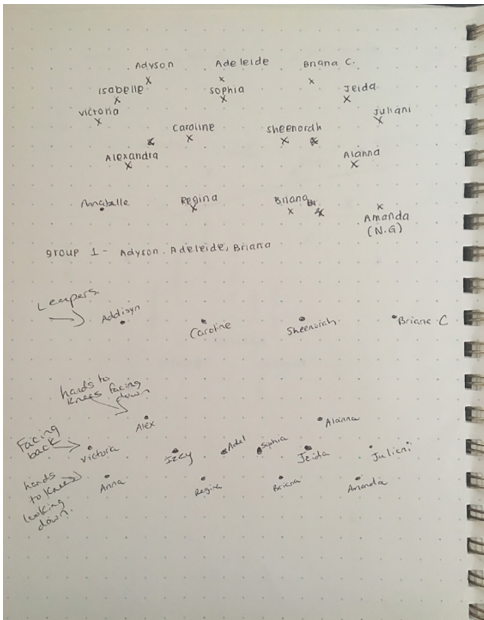 Adyson Adeleide Briana C.
Isabelle Sophia Jeida
Victoria Juliani
Caroline Sheenoidh
Alexandra Alanna
Annabelle Regina Briana Br.
Amanda
(N.G)
group 1 - Adyson, Adeleide, Briana
Leapers
Addisyn Caroline Sheenoidh Briane C
hands to
knees facing
down
Alex Alanna
Facing
back
Victoria Izzy Adel Sophia Jeida Juliani
hands
to knees
looking
down.
Anna Regina Briana Amanda